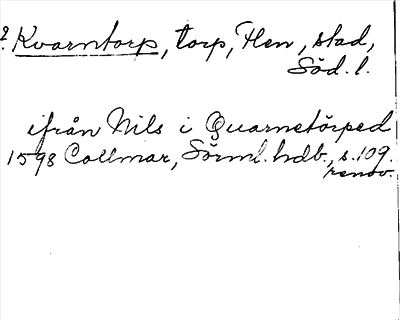 2. Kvarntorp, torp, Flen, stad,
Söd. l.
ifrån Nils i Quarnetörped
1598 Collmar, Sörml. hdb., s. 109.
renov.